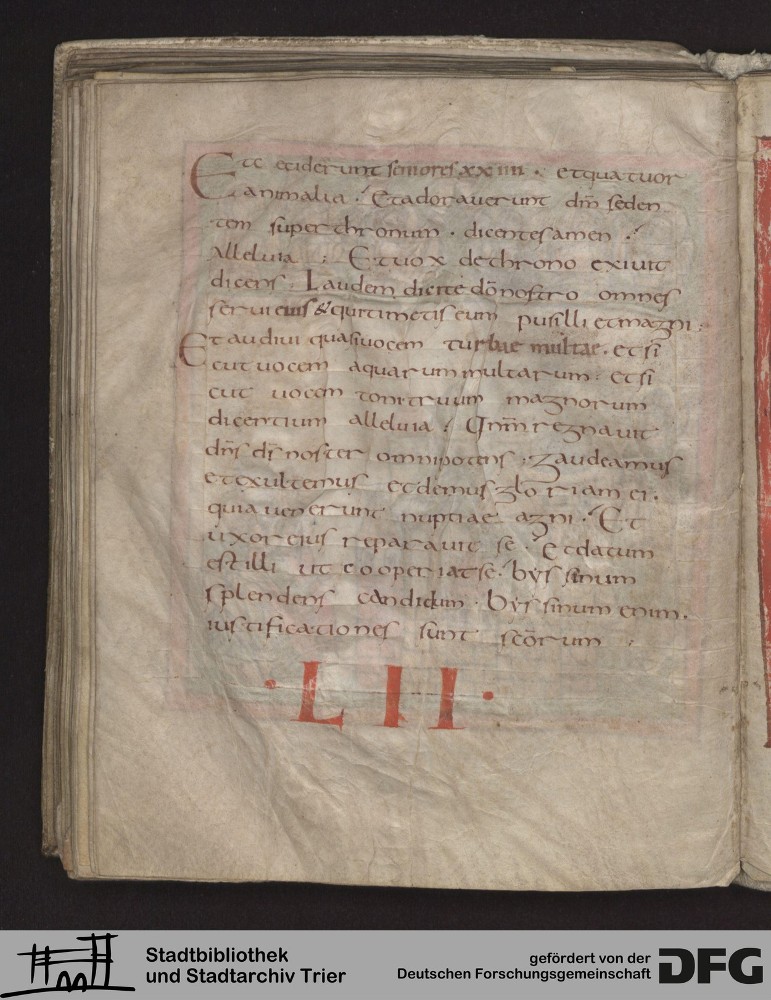 Et ceciderunt seniores xxiiii · et quatuor
animalia · Et adoraverunt dm̄ seden
tem super thronum · dicentes amen ·
Alleluia : Et vox de throno exivit
dicens · Laudem dicite dō nostro omnes
servi eius & qui timetis eum pusilli et magni :
Et audivi quasi vocem turbae multae · et si
cut vocem aquarum multarum : et si
cut vocem tonitruum magnorum
dicentium alleluia : Qm̄ regnavit
dn̄s ds̄ noster omnipotens · gaudeamus
et exultemus et demus gloriam ei ·
quia venerunt nuptiae agni · Et
uxor eius reparavit se · Et datum
est illi ut cooperiat se · byssinum
splendens candidum · byssinum enim ·
iustificationes sunt scōrum :
· L I I ·
Stadtbibliothek
und Stadtarchiv Trier
gefördert von der
Deutschen Forschungsgemeinschaft
DFG